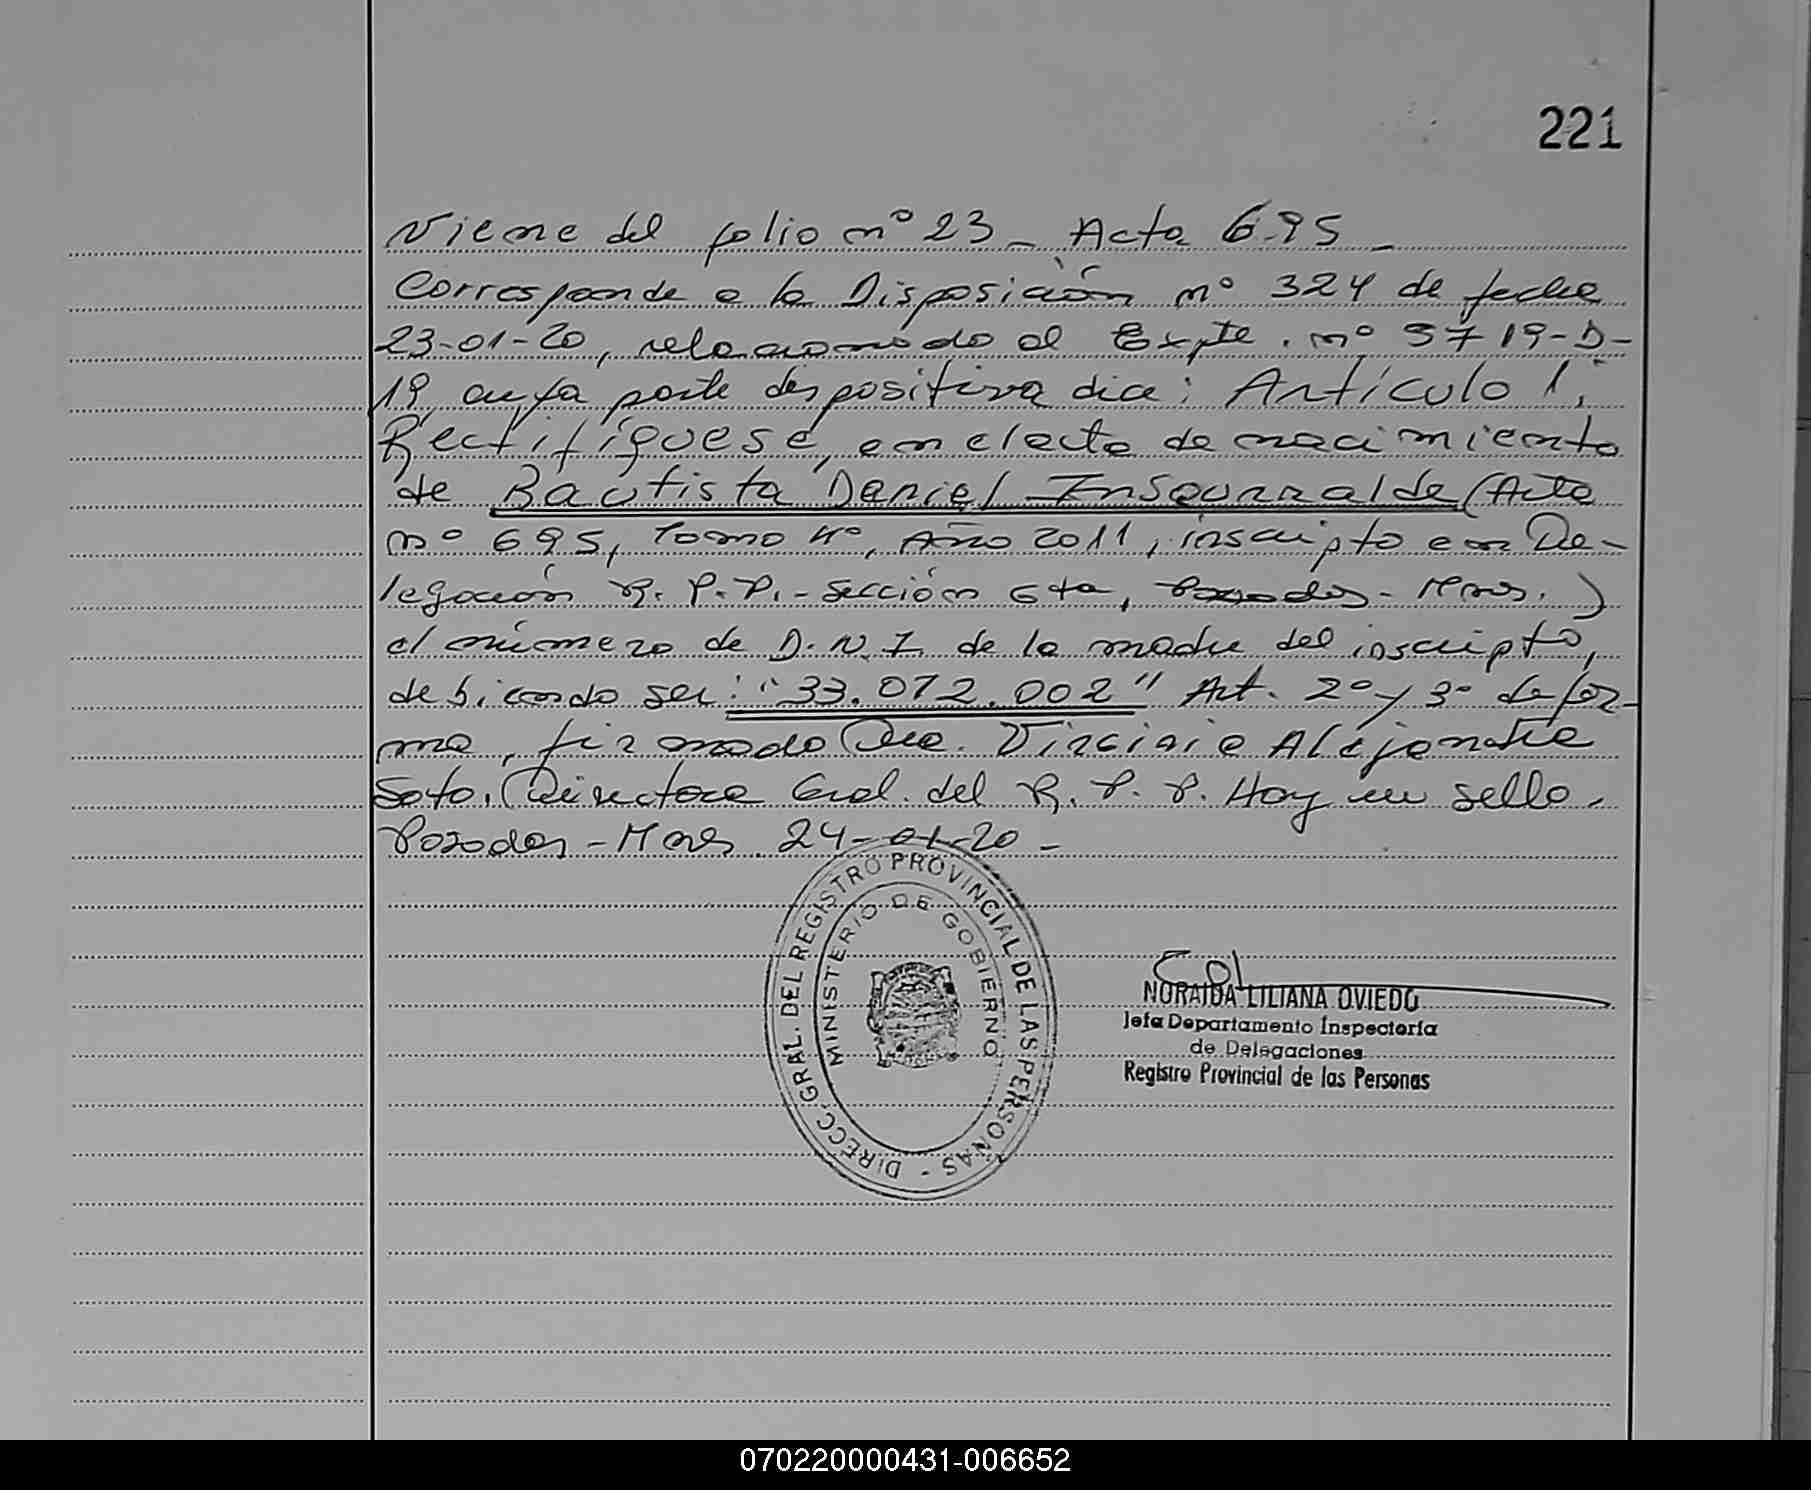 221
Viene del folio nº 23 - Acta 695 -
Corresponde a la Disposición nº 324 de fecha
23-01-20, relacionado al Expte. nº 3719-D-
19, cuya parte dispositiva dice: Artículo 1;
Rectifíquese, en el acta de nacimiento
de Bautista Daniel Insaurralde (Acta
nº 695, Tomo 4º, Año 2011, inscripto en De-
legación R.P.P.- Sección 6ta, Posadas - Mnes.)
el número de D.N.I. de la madre del inscripto,
debiendo ser: "33.072.002" Art. 2º y 3º de for-
ma, firmado Dra. Virginia Alejandra
Soto, Directora Gral. del R.P.P. Hay un sello.
Posadas - Mnes. 24-01-20 -
DIRECC. GRAL. DEL REGISTRO PROVINCIAL DE LAS PERSONAS -
MINISTERIO DE GOBIERNO
NORAIDA LILIANA OVIEDO
Jefa Departamento Inspectoría
de Delegaciones
Registro Provincial de las Personas
070220000431-006652